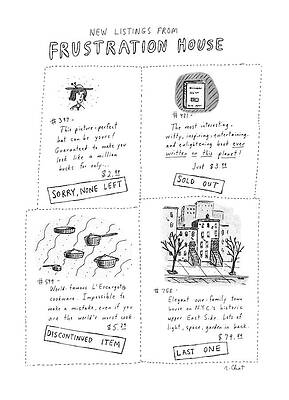 NEW LISTINGS FROM
FRUSTRATION HOUSE
This picture-perfect
hat can be yours!
Guaranteed to make you
look like a million
bucks for only...
$2.99
SORRY, NONE LEFT
The most interesting,
witty, inspiring, entertaining,
and enlightening book ever
written on this planet!
Just $3.99
SOLD OUT
World-famous L'Escargots
cookware. Impossible to
make a mistake, even if you
are the world's worst cook.
DISCONTINUED ITEM
Elegant one-family town
house on N.Y.C.'s historic
upper East Side. Lots of
light, space, garden in back.
$79.99
LAST ONE
r. Chast